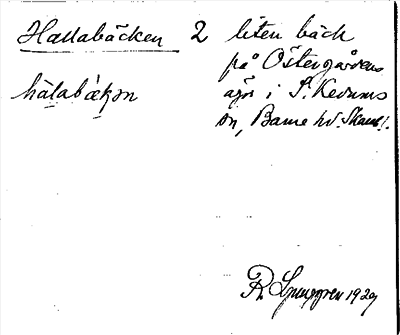 Hallabäcken 2 liten bäck
på Östergårdens
hälabäkon ägor i S. Kedums
sn, Barne hd. Skarab. l.
R. Ljunggren 1929